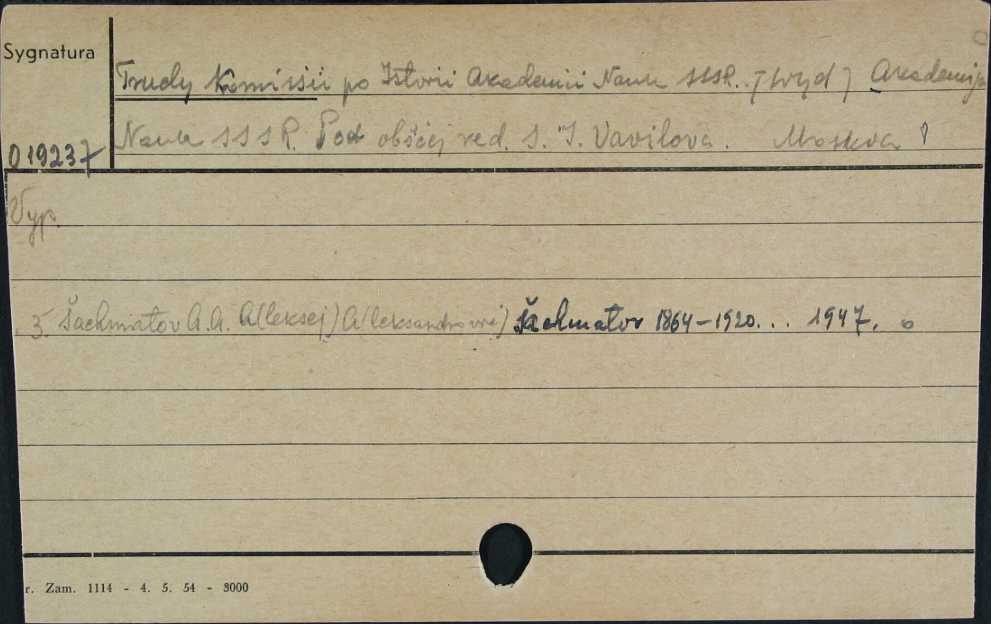 Sygnatura
Trudy Komissii po Istorii Akademii Nauk SSSR. [wyd] Akademija
Nauk SSSR. Pod obščej red. S. I. Vavilova. Moskva
019237
Vyp.
3. Šachmatov A.A. A(leksej) A(leksandrovič) Šachmatov 1864-1920... 1947.
r. Zam. 1114 - 4. 5. 54 - 3000